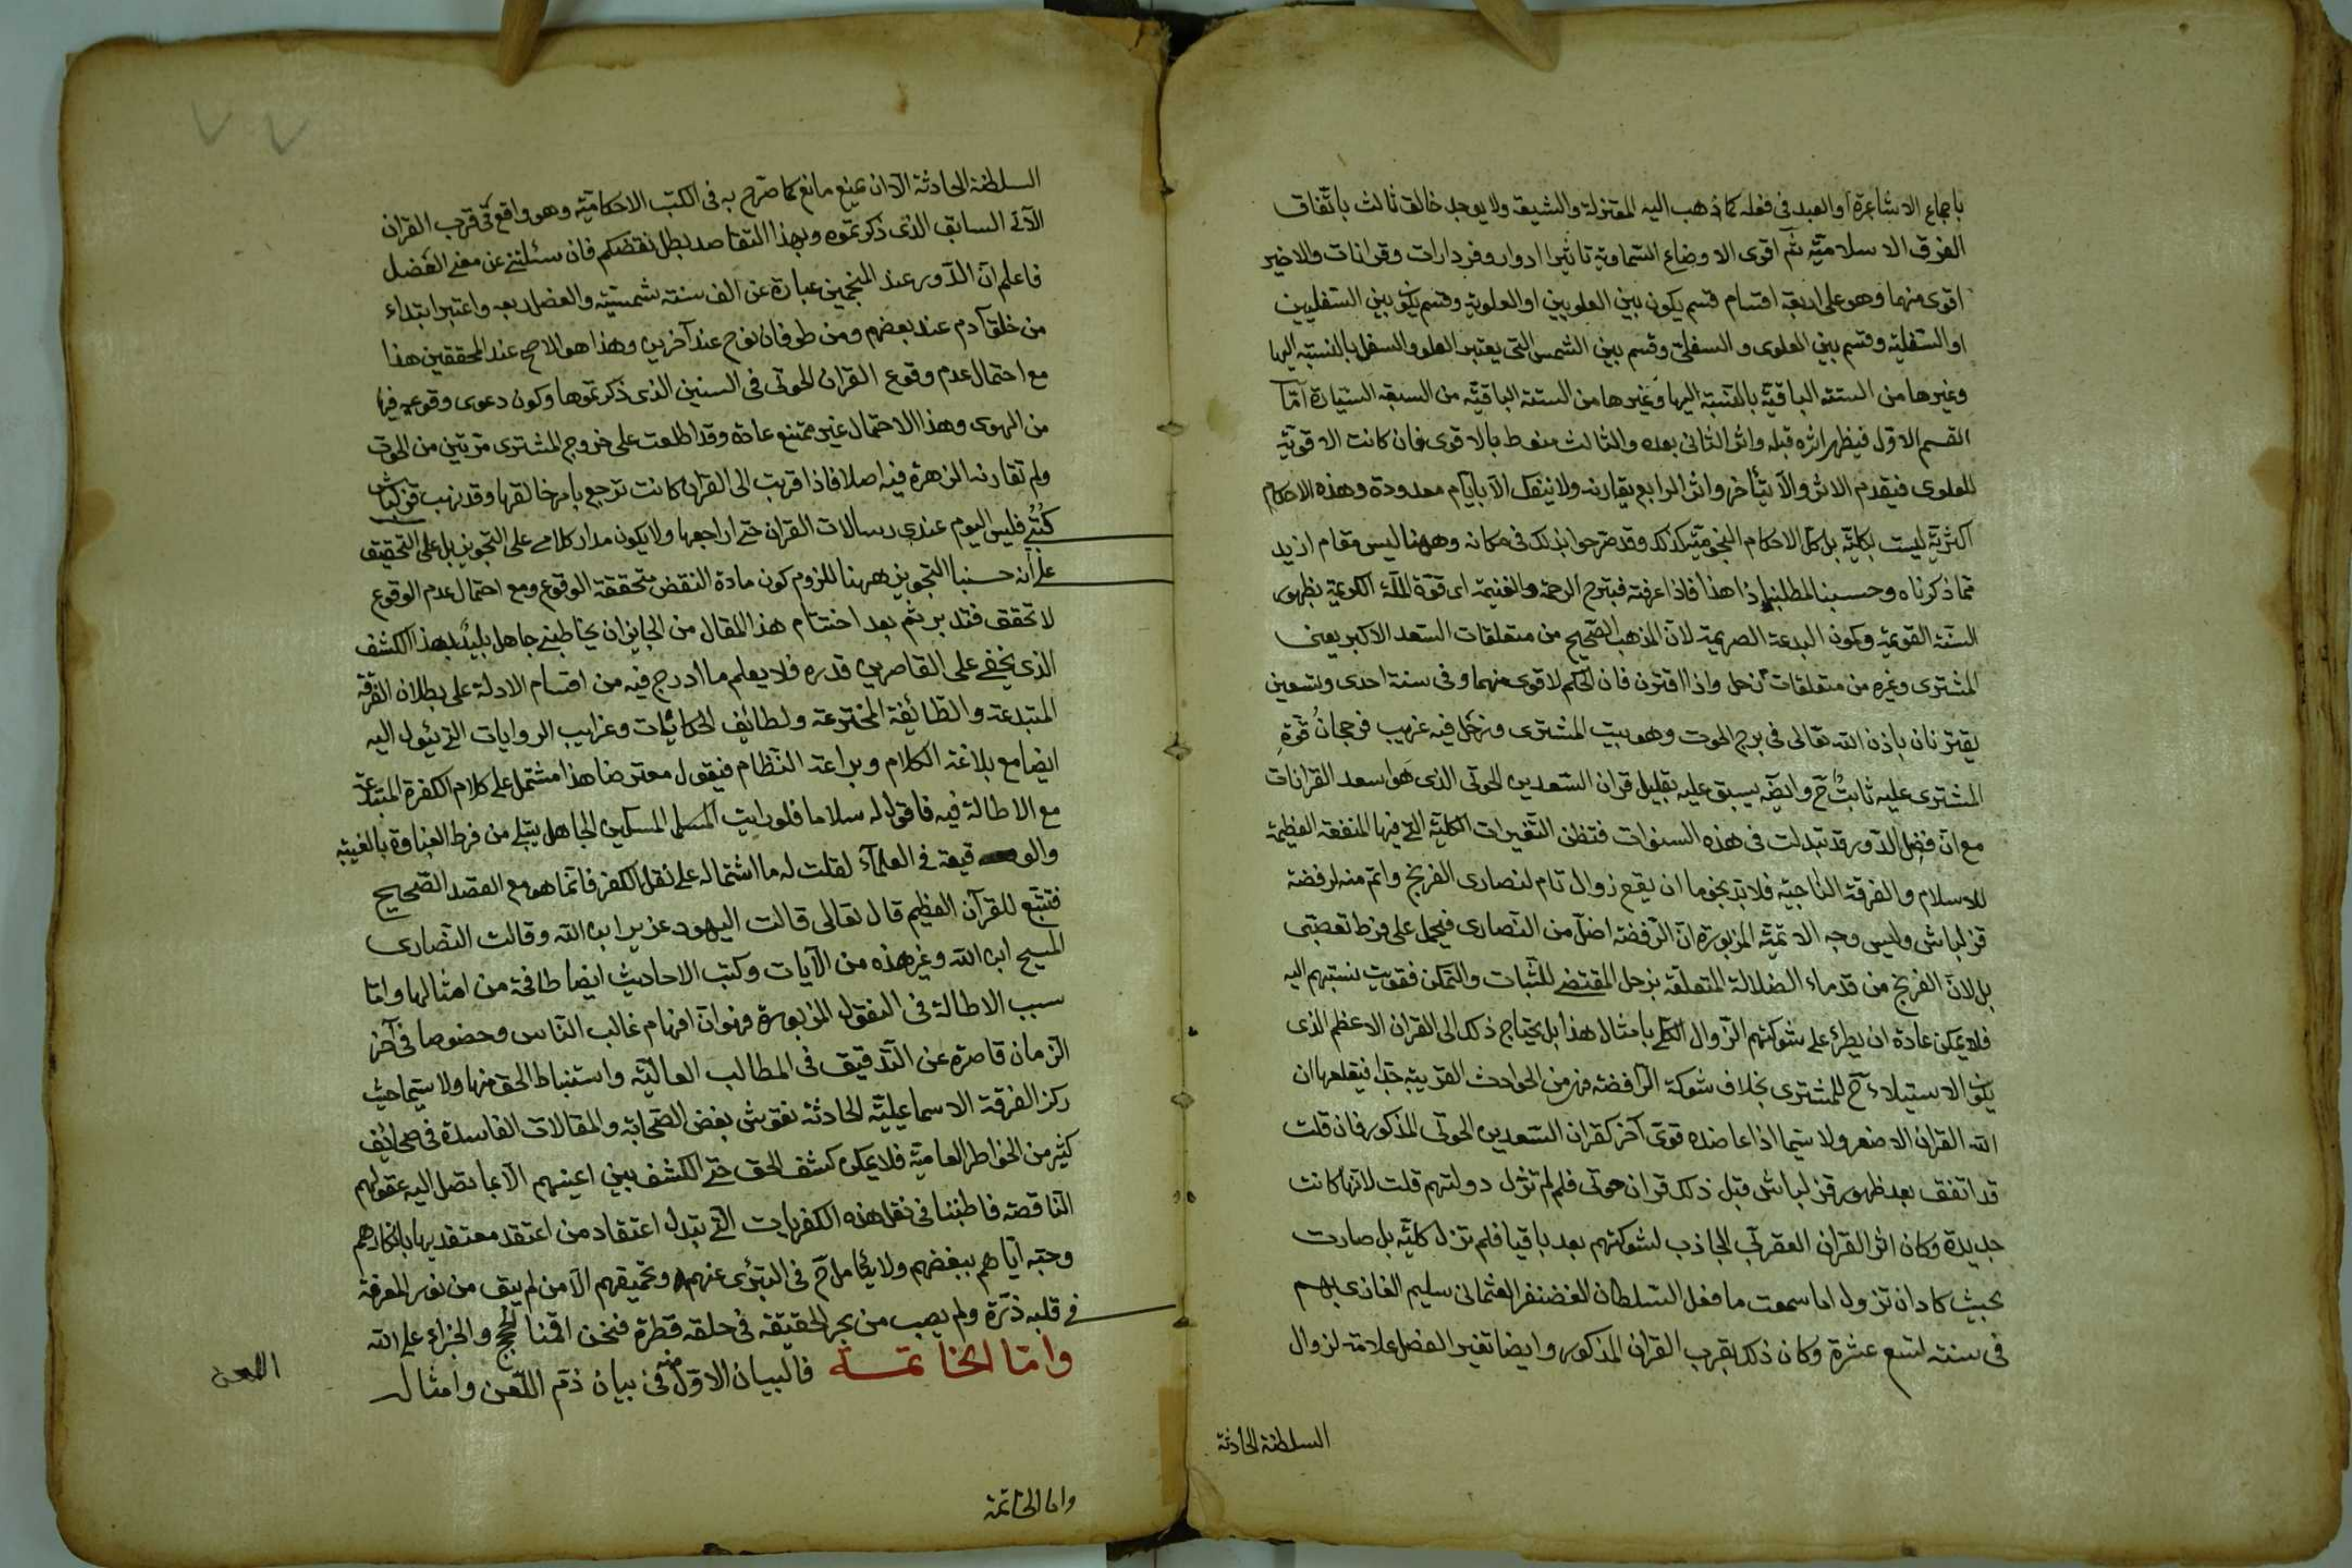 باجماع الاشاعرة او العبد في فعله كما ذهب اليه المعتزلة والشيعة ولا يوجد خالق ثالث باتفاق
الفرق الاسلاميّة ثم اقوى الاوضاع السماوية تاثيرا ادوار وفردارات وقرانات والاخير
اقوى منهما وهو على اربعة اقسام قسم يكون بين العلويين او العلوية وقسم يكون بين السفليين
او السفلية وقسم بين العلوى والسفلى وقسم بين الشمس التى يعتبر العلو والسفل بالنسبة اليها
وغيرها من الستة الباقية بالنسبة اليها وغيرها من الستة الباقية من السبعة السيارة امّا
القسم الاوّل فيظهر اثره قبله واثر الثانى بعده والثالث منوط بالاقوى فان كانت الاقوية
للعلوى فيقدم الاثر والّا يتأخر واثر الرابع يقارنه ولا ينفك الّا بايّام معدودة وهذه الاحكام
اكثريّة ليست بكليّة بل كل الاحكام النجوميّة كذلك وقد صرحوا بذلك فى مكانه وههنا ليس مقام ازيد
مما ذكرناه وحسبنا لمطلبنا هذا فاذا عرفته فبترح الرحمة والغنيمة اى قوّة الملّة الكريمة بظهور
السنّة القويمة وكمون البدعة الصريمة لانّ المذهب الصّحيح من متعلقات السّعد الاكبر يعنى
المشترى وغيره من متعلقات زحل واذا اقترن فان الحكم لاقوى منهما وفى سنة احدى وتسعين
يقترنان باذن الله تعالى فى برج الحوت وهو بيت المشترى وزحل فيه غريب فرجحان قوّة
المشترى عليه ثابتٌ ح وايضا يسبق عليه بقليل قران السّعدين الحوتى الذى هو اسعد القرانات
مع انّ فضل الدّور قد تبدلت فى هذه السنوات فتظن التّغيرات الكليّة التى فيها المنفعة العظيمة
للاسلام والفرقة النّاجيّة فلابدّ نجوما ان يقع زوال تام لنصارى الفرنج واتم منه لرفضة
قزلباش وليس وجه الاتميّة المزبورة انّ الرّفضة اضلّ من النّصارى فيحمل على فرط تعصّبى
بل لانّ الفرنج من قدماء الضلالة المتعلّقة بزحل المقتضى للثّبات والتمكن فقويت نسبتهم اليه
فلا يمكن عادة ان يطرء على شوكتهم الزّوال الكلى بامثال هذا بل يحتاج ذلك الى القران الاعظم الذى
يكون الاستيلاء ح للمشترى بخلاف شوكة الرّافضة فهى من الحوادث القريبة جدّا فيقلعها ان
الله القران الاصغر ولا سيّما اذا عاضده قوىّ آخر كقران السّعدين الحوتى المذكور فان قلت
قد اتفق بعد ظهور قزلباش قبل ذلك قران حوتى فلم لم تزل دولتهم قلت لانّها كانت
جديدة وكان اثر القران العقربى الجاذب لشوكتهم بعد باقيا فلم تزل كليّة بل صارت
بحيث كاد ان تزول اما سمعت ما فعل السّلطان الغضنفر العثمانى سليم الغازى بهم
فى سنة تسع عشرة وكان ذلك بقرب القران المذكور وايضا تغير الفضل علامة لزوال
السلطنة الحادثة
السلطنة الحادثة الّا ان يمنع مانع كما صرّح به فى الكتب الاحكاميّة وهو واقع فى قرب القران
الآتى السابق الذى ذكرتموه وبهذا التقاصد بطل نقضكم فان سئلتنى عن معنى الفضل
فاعلم انّ الدّور عند المنجمين عبارة عن الف سنة شمسيّة والفضل ربعه واعتبر ابتداء
من خلق آدم عند بعضهم ومن طوفان نوح عند آخرين وهذا هو الاصح عند المحققين هذا
مع احتمال عدم وقوع القران الحوتى فى السنين الذى ذكرتموها وكون دعوى وقوعه فيها
من الهوى وهذا الاحتمال غير ممتنع عادة وقد اطلعت على خروج المشترى مرّتين من الحوت
ولم تقارنه الزهرة فيه اصلا فاذا قربت الى القران كانت ترجع بامر خالقها وقد نهب قزلباش
كُتُبى فليس اليوم عندى رسالات القران حتى اراجعها ولا يكون مدار كلامى على التجويز بل على التحقيق
على انه حسبنا التجويز ههنا للزوم كون مادة النقض متحققة الوقوع ومع احتمال عدم الوقوع
لا تحقق فتدبر ثم بعد اختتام هذا المقال من الجايز ان يخاطبنى جاهل بليدٌ بهذا الكشف
الذى يخفى على القاصرين قدره فلا يعلم ما ادرج فيه من اقسام الادلة على بطلان الفرقة
المبتدعة والطّائفة المخترعة ولطائف الحكايات وغرايب الروايات التى يئول اليه
ايضا مع بلاغة الكلام وبراعة النّظام فيقول معترضا هذا مشتمل على كلام الكفرة المبتدعة
مع الاطالة فيه فاقول له سلاما فلو رايت المسلم المسكين الجاهل يبتلى من فرط الغباوة بالغيبة
والوقيعة فى العلمآء لقلت له ما اشتماله على نقل الكفر فانّما هو مع القصد الصّحيح
فتتبّع للقرآن العظيم قال تعالى قالت اليهود عزير ابن الله وقالت النّصارى
المسيح ابن الله وغير هذه من الآيات وكتب الاحاديث ايضا طافحة من امثالها وامّا
سبب الاطالة فى النقول المزبورة فهو انّ افهام غالب النّاس وخصوصا فى آخر
الزمان قاصرة عن التّدقيق فى المطالب العاليّة واستنباط الحق منها ولا سيّما حيث
ركز الفرقة الاسماعيليّة الحادثة نقوش بغض الصّحابة والمقالات الفاسدة فى صحايف
كثير من الخواطر العاميّة فلا يمكن كشف الحق حتى الكشف بين اعينهم الّا بما تصل اليه عقولهم
النّاقصة فاطنبنا فى نقل هذه الكفريات التى تبدل اعتقاد من اعتقد معتقديها بانكارهم
وحبّه ايّاهم ببغضهم ولا يكامل ح فى التبرّى عنهم وتحميقهم الّا من لم يبق من نور المعرفة
فى قلبه ذرّة ولم يصب من بحر الحقيقة فى حلقه قطرة فنحن اقمنا الحجج والجزاء على الله
وامّا الخاتمة فالبيان الاوّل منه فى بيان ذمّ اللّعن وامثاله
اللعن
واما الخاتمة